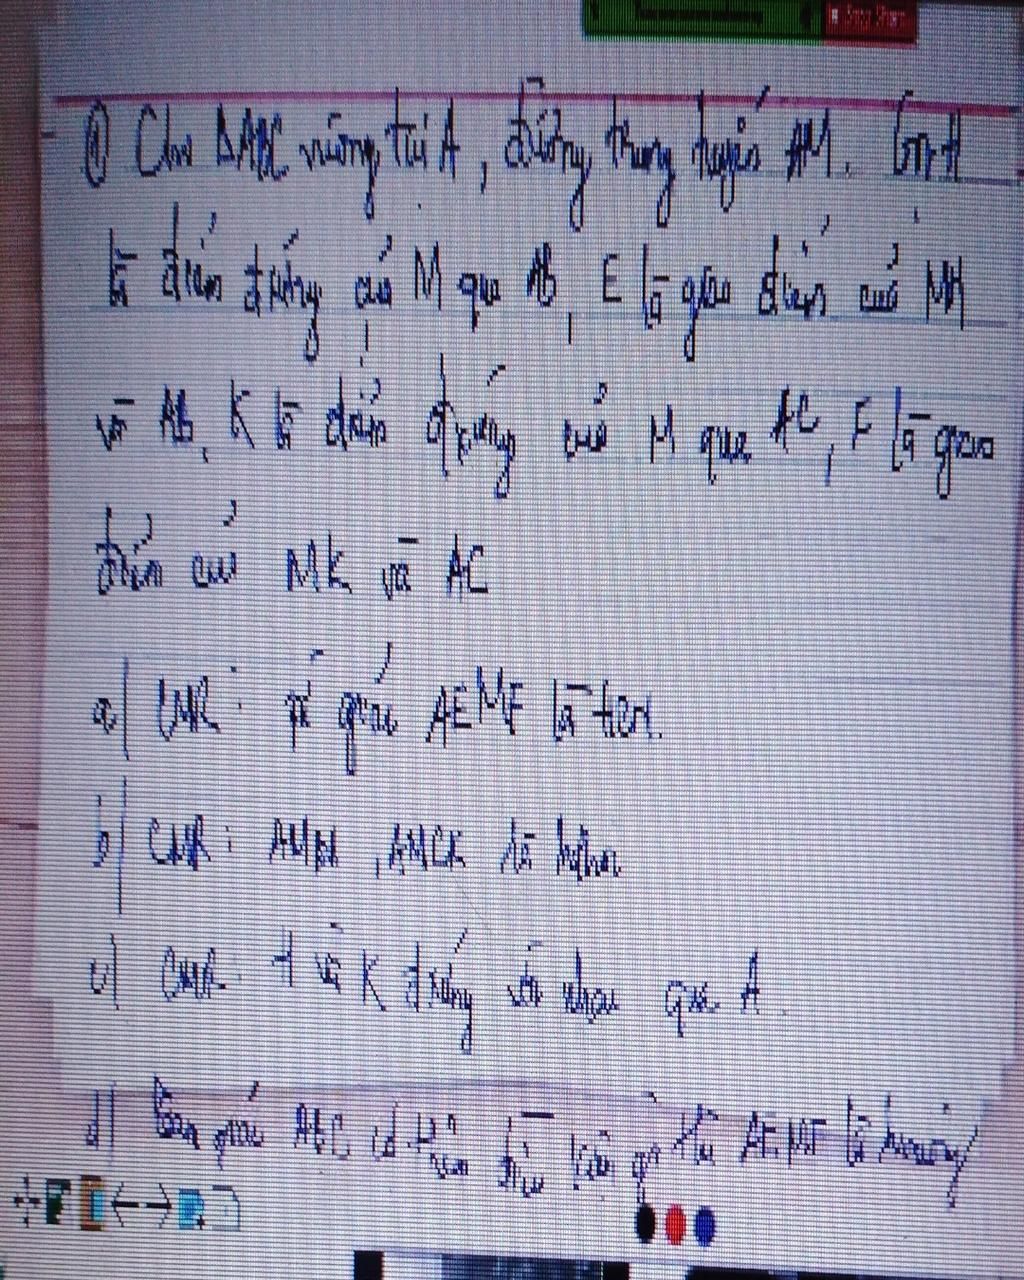 ① Cho ΔABC vuông tại A, đường trung tuyến AM. Gọi H
là điểm đ/xứng của M qua AB, E là giao điểm của MH
và AB, K là điểm đ/xứng của M qua AC, F là giao
điểm của MK và AC
a) CMR: tứ giác AEMF là hcn.
b) CMR: AMBH, AMCK là hthoi
c) CMR: H và K đ/xứng với nhau qua A.
d) Tam giác ABC có thêm điều kiện gì thì AEMF là hvuông